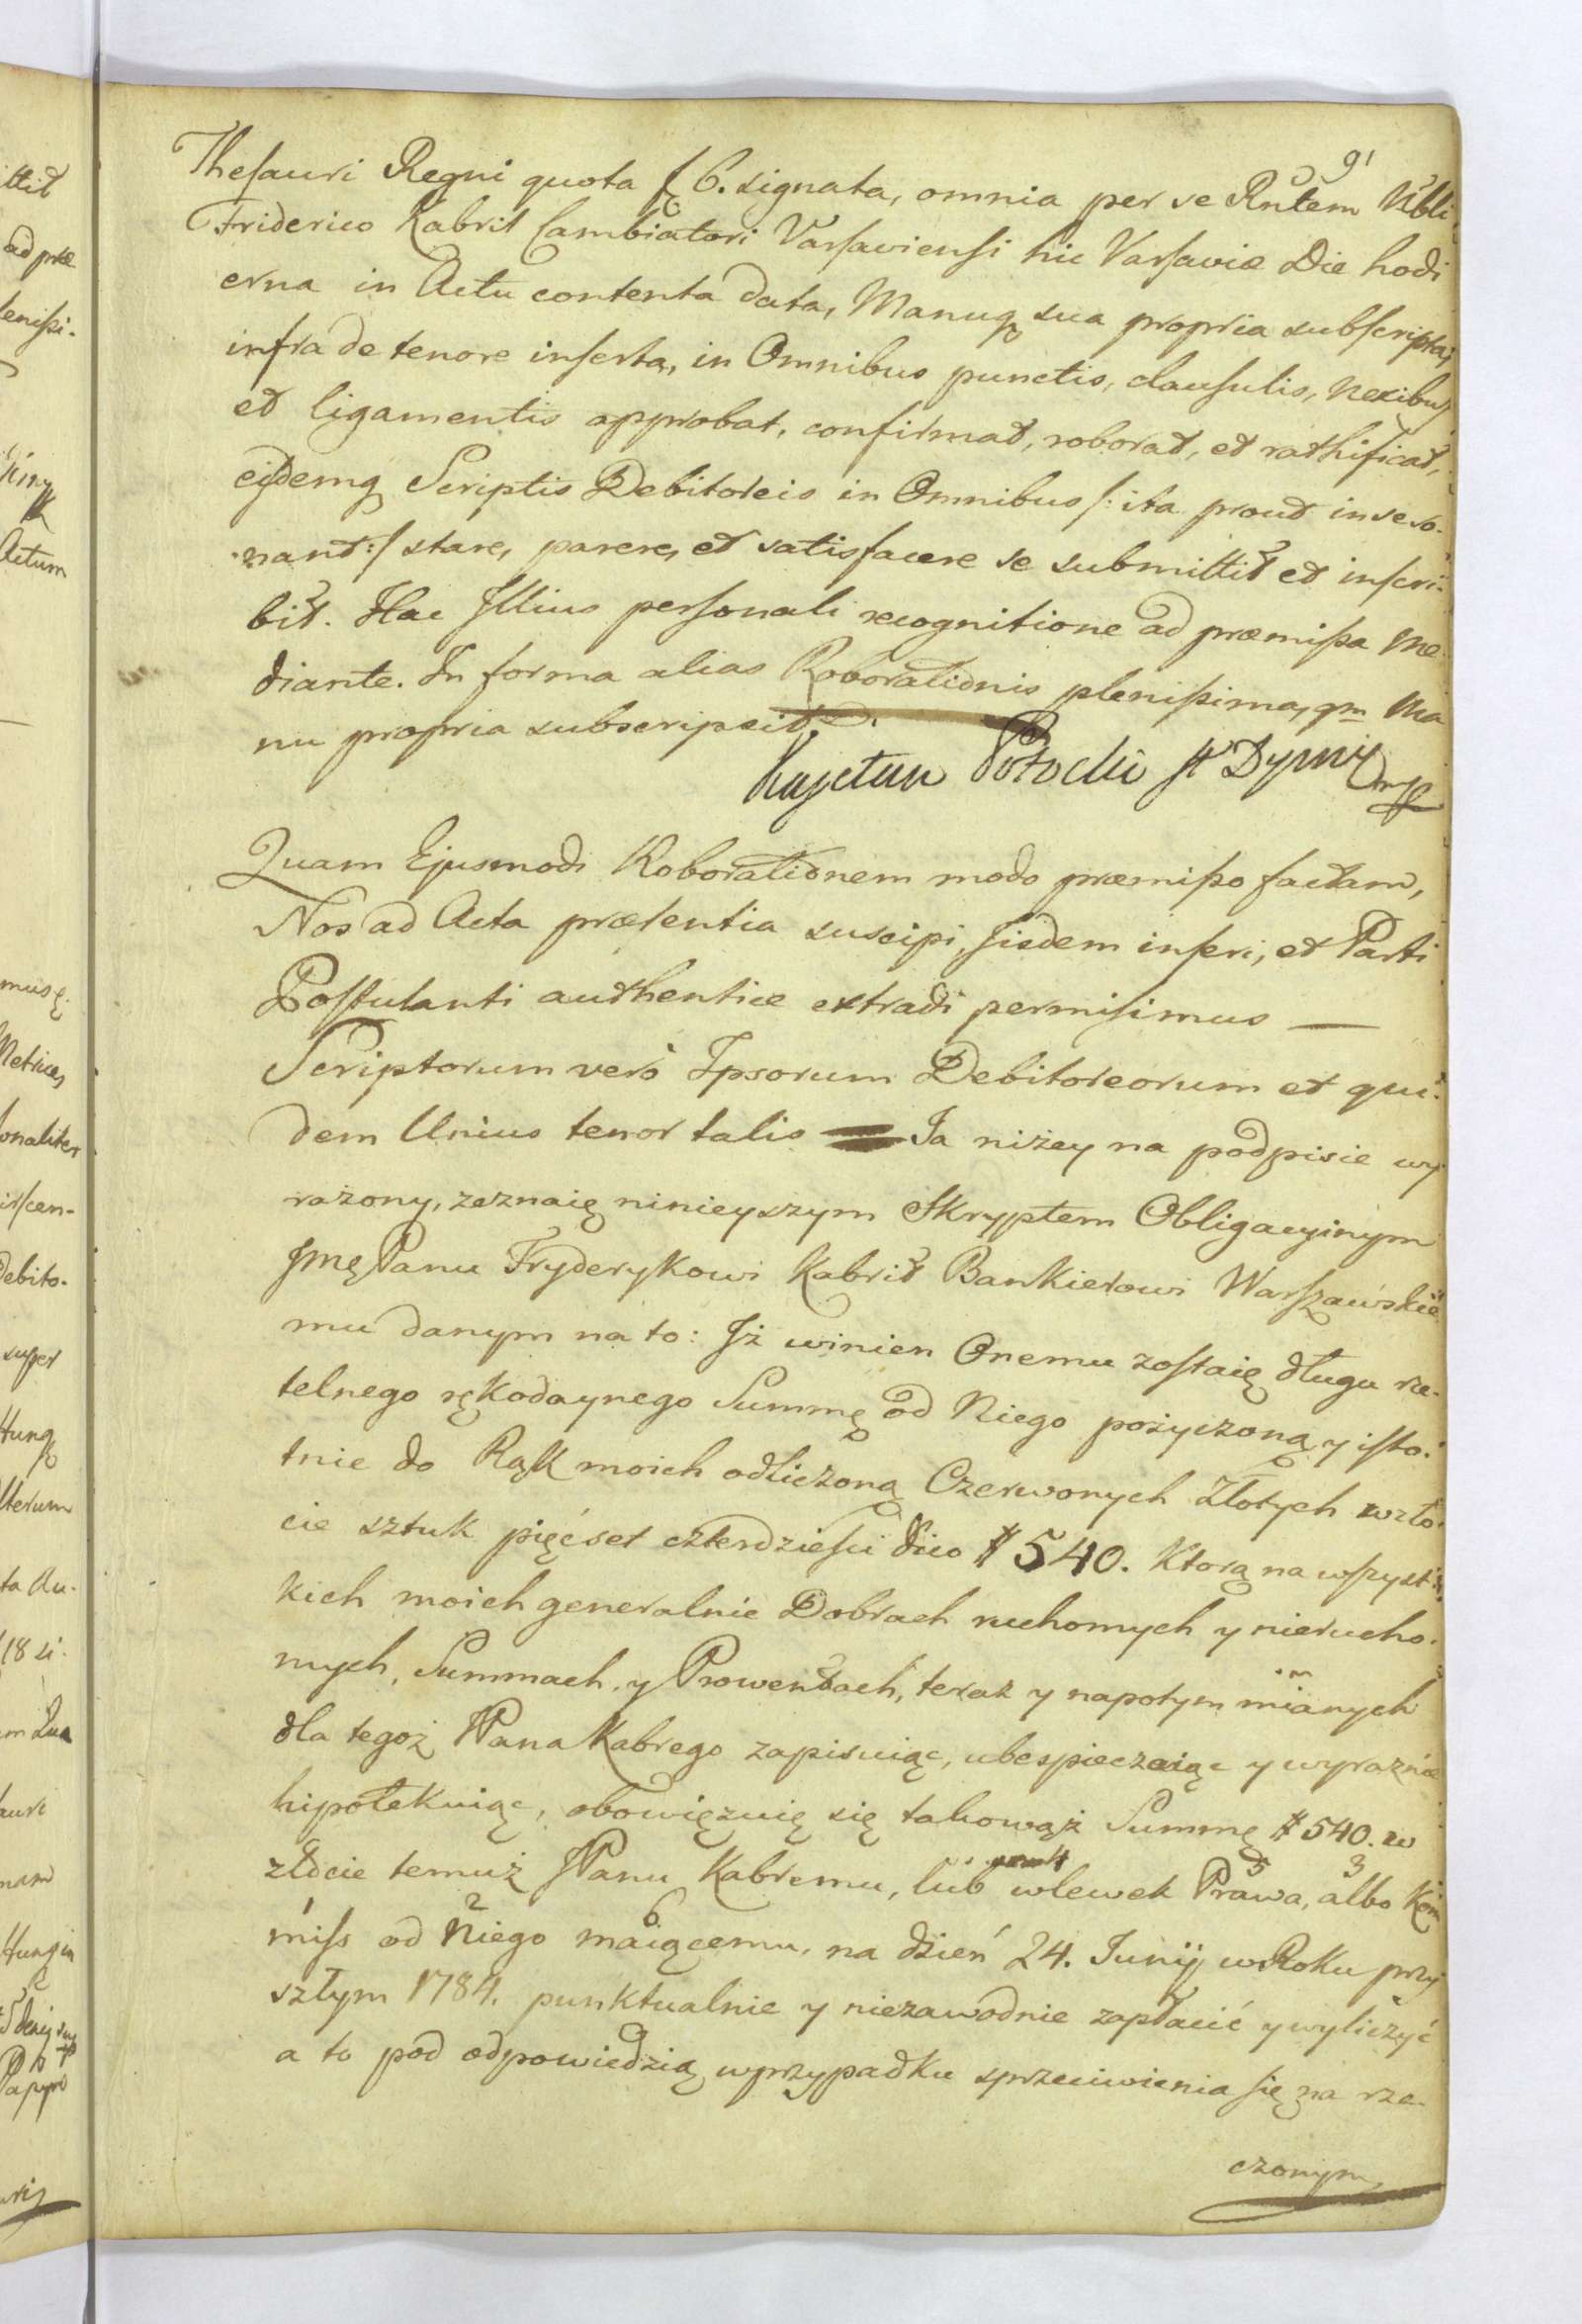 91
Thesauri Regni quota f 6. signata, omnia per se Rntem Nbli
Friderico Kabrit Cambiatori Varsaviensi hic Varsaviæ Die hodi
erna in Actu contenta data, Manuq sua propria subscripta,
infra de tenore inserta, in Omnibus punctis, clausulis, nexibus
et ligamentis approbat, confirmat, roborat, et rathificat,
eisdemq Scriptis Debitoreis in Omnibus /: ita prout in se so-
nant :/ stare, parere, et satisfacere se submittit et inscri-
bit. Hac Illius personali recognitione ad præmissa me
diante. In forma alias Roborationis plenissima, qm Ma
nu propria subscripsit.
Kajetan Potocki st Dymir mp
Quam Ejusmodi Roborationem modo præmisso factam,
Nos ad Acta præsentia suscipi, Iisdem inseri, et Parti
Postulanti authentice extradi permisimus —
Scriptorum verò Ipsorum Debitoreorum et qui-
dem Unius tenor talis — Ja niżey na podpisie wy
rażony, zeznaię ninieyszym Skryptem Obligacyinym
Jmę Panu Fryderykowi Kabrit Bankierowi Warszawskie
mu danym na to: Iż winien Onemu zostaię długu rze-
telnego rękodaynego Summę od Niego pożyczoną y isto-
tnie do Rąk moich odliczoną Czerwonych Złotych w zło-
cie sztuk pięćset czterdzieści dico # 540. Ktorą na wszyst
kich moich generalnie Dobrach ruchomych y nierucho-
mych, Summach, y Prowentach, teraz y napotym mianych
dla tegoż JPana Kabrego zapisuiąc, ubespieczaiąc y wyraźnie
hipotekuiąc, obowięzuię się takowąż Summę # 540. w
złocie temuż JPanu Kabremu, lub 4 wlewek Prawa, 5 albo 3 Kom
1 miss od 2 Niego 6 maiącemu, na dzień 24. Junij w Roku przy
szłym 1784. punktualnie y niezawodnie zapłacić y wyliczyć
a to pod odpowiedzią w przypadku sprzeciwienia się na rze-
czonym